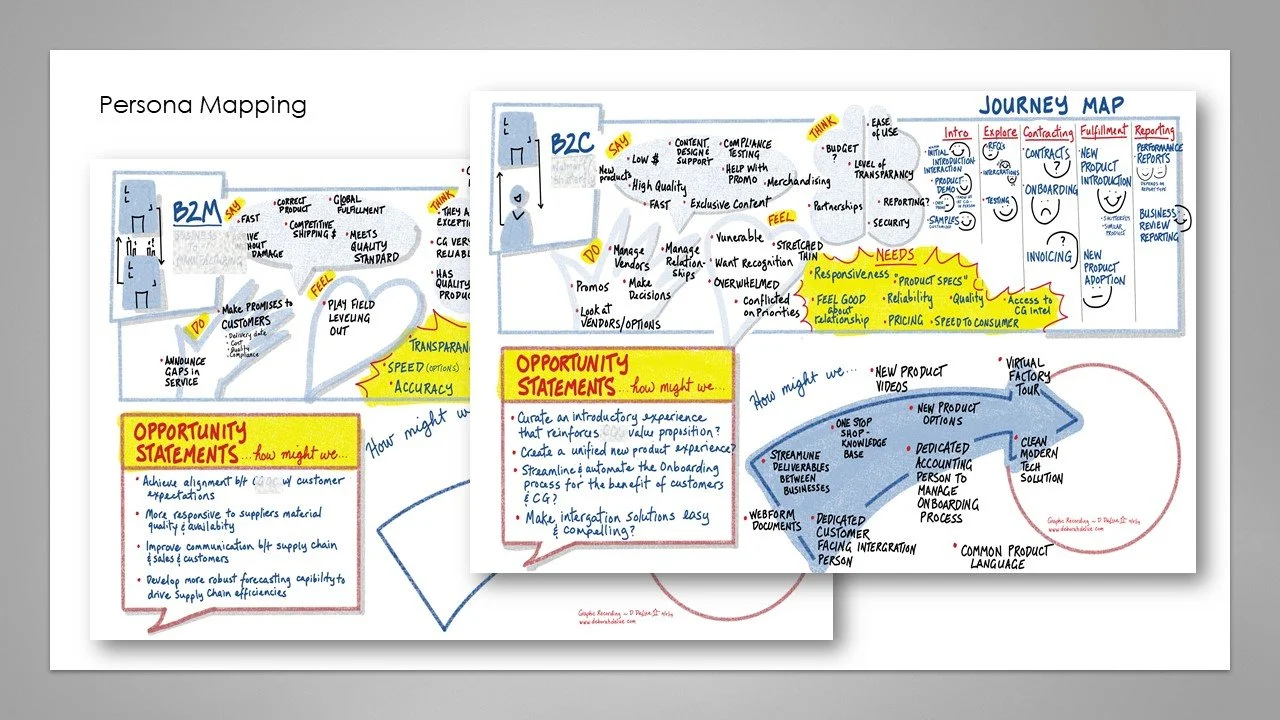 Persona Mapping
B2M
SAY
FAST
CORRECT
PRODUCT
GLOBAL
FULFILLMENT
COMPETITIVE
SHIPPING $
IVE
HOUT
DAMAGE
MEETS
QUALITY
STANDARD
THINK
THEY A
EXCEPTI
CG VERY
RELIABL
HAS
QUALITY
PRODUC
DO
Make PROMISES to
CUSTOMERS
- Delivery date
- Quality
- Compliance
ANNOUNCE
GAPS in
SERVICE
FEEL
PLAY FIELD
LEVELING
OUT
TRANSPARAN
SPEED (OPTIONS)
ACCURACY
OPPORTUNITY
STATEMENTS...how might we...
Achieve alignment b/t w/ customer
expectations
More responsive to suppliers material
quality & availabity
Improve communication b/t supply chain
& sales & customers
Develop more robust forecasting capibility to
drive Supply Chain efficiencies
How might w
Graphic Recording
www.deborahdalive.com
JOURNEY MAP
B2C
SAY
Low $
New
products
CONTENT,
DESIGN &
SUPPORT
COMPLIANCE
TESTING
HELP WITH
PROMO
Merchandising
High Quality
FAST
Exclusive Content
THINK
EASE
of USE
BUDGET
?
LEVEL of
TRANSPARANCY
Partnerships
REPORTING?
SECURITY
DO
Manage
Vendors
Manage
Relation-
ships
Promos
Make
Decisions
Look at
VENDORS/OPTIONS
FEEL
Vunerable
STRETCHED
THIN
Want Recognition
OVERWHELMED
Conflicted
on Priorities
NEEDS
Responsiveness
"PRODUCT SPECS"
FEEL GOOD
about
relationship
Reliability
Quality
Access to
CG Intel
PRICING
SPEED to CONSUMER
Intro
INITIAL
INTRODUCTION
INTERACTION
PRODUCT
DEMO
SAMPLES
CUSTOMIZED
Explore
RFQs
INTERGRATIONS
TESTING
Contracting
CONTRACTS
?
ONBOARDING
?
INVOICING
Fulfillment
NEW
PRODUCT
INTRODUCTION
- SIMILAR
PRODUCT
NEW
PRODUCT
ADOPTION
Reporting
PERFORMANCE
REPORTS
BUSINESS
REVIEW
REPORTING
OPPORTUNITY
STATEMENTS...how might we...
Curate an introductory experience
that reinforces value proposition?
Create a unified new product experience?
Streamline & automate the Onboarding
process for the benefit of customers
& CG?
Make intergation solutions easy
& compelling?
How might we...
NEW PRODUCT
VIDEOS
VIRTUAL
FACTORY
TOUR
ONE STOP
SHOP -
KNOWLEDGE
BASE
NEW PRODUCT
OPTIONS
STREAMLINE
DELIVERABLES
BETWEEN
BUSINESSES
DEDICATED
ACCOUNTING
PERSON TO
MANAGE
ONBOARDING
PROCESS
CLEAN
MODERN
TECH
SOLUTION
WEBFORM
DOCUMENTS
DEDICATED
CUSTOMER
FACING INTERGRATION
PERSON
COMMON PRODUCT
LANGUAGE
Graphic Recording
www.deborahdalive.com